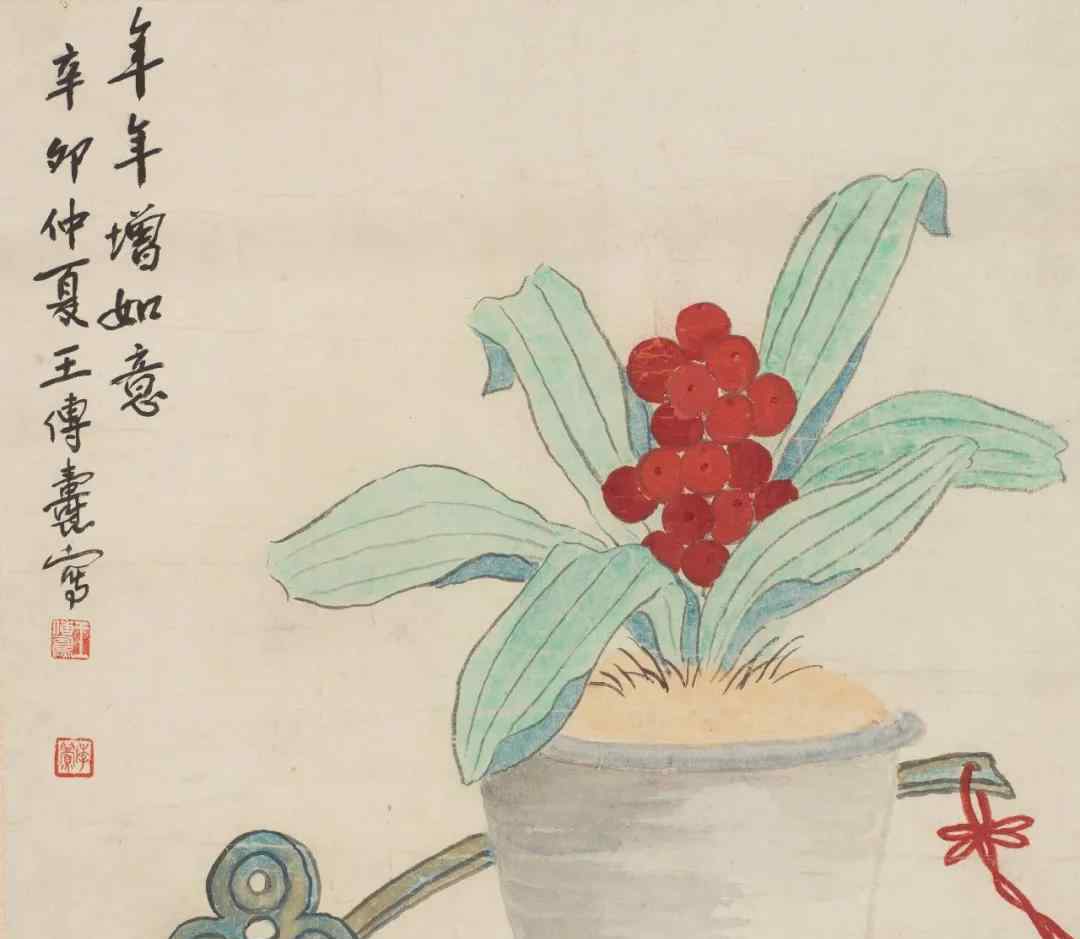 年年增如意
辛卯仲夏王傳寫